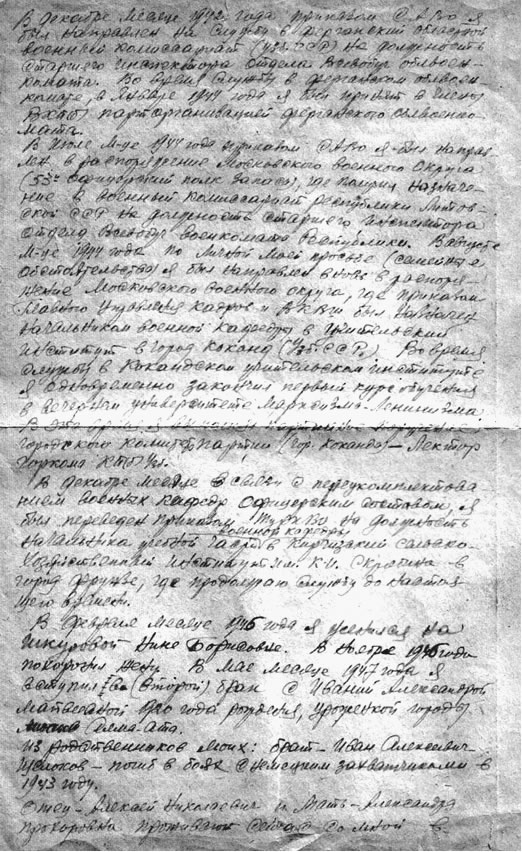 В декабре месяце 1942 года приказом САВО я
был направлен на службу в Ферганский областной
военный комиссариат (УзССР) на должность
старшего инспектора отдела Всевобуч облвоен-
комата. Во время службы в Ферганском облвоен-
комате, в январе 1944 года я был принят в члены
ВКП(б) парторганизацией Ферганского облвоенко-
мата.
В июле м-це 1944 года приказом САВО я был направ-
лен в распоряжение Московского Военного Округа
полк запаса), где получил назначе-
ние в военный комиссариат республики Литов-
ской ССР на должность старшего инспектора
отдела Всевобуч Военкомата Республики. В августе
м-це 1944 года по личной моей просьбе (семейные
обстоятельства) я был направлен вновь в распоря-
жение Московского военного округа, где приказом
Главного Управления кадров был назначен
начальником военной кафедры в Учительский
институт в город Коканд (УзССР). Во время
службы в Кокандском учительском институте
я одновременно закончил первый курс обучения
в вечернем университете Марксизма-Ленинизма.
городского комитета партии (гор. Коканда) - Лектор
Горкома КП(б)Уз.
В декабре месяце в связи с переукомплектова
нием военных кафедр офицерским составом, я
был переведен приказом ТуркВО на должность
военной кафедры
начальника учебной части в Киргизский сельско-
хозяйственный институт им. К.И. Скрябина - в
город Фрунзе, где продолжаю службу до настоя-
щего времени.
В феврале месяце 1945 года я женился на
Шкуровой Нине Борисовне. В ноябре 1946 года
похоронил жену. В мае месяце 1947 года я
вступил во (второй) брак с Александрой
1920 года рождения, уроженкой города
Алма-ата.
Из родственников моих: брат - Иван Алексеевич
- погиб в боях с немецкими захватчиками в
1943 году.
Отец - Алексей Николаевич и Мать - Александра
Прохоровна проживают сейчас со мной в